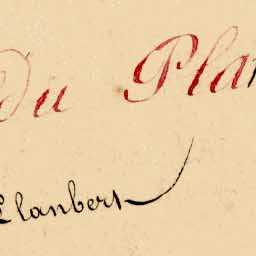 du Plan
Llanbert